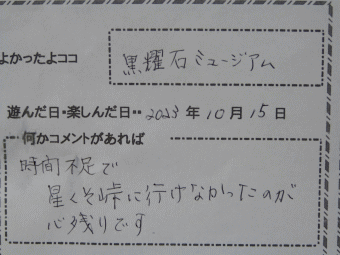 よかったよココ 黒耀石ミュージアム
遊んだ日・楽しんだ日‥ 2023 年 10 月 15 日
何かコメントがあれば
時間不足で
星くそ峠に行けなかったのが
心残りです.